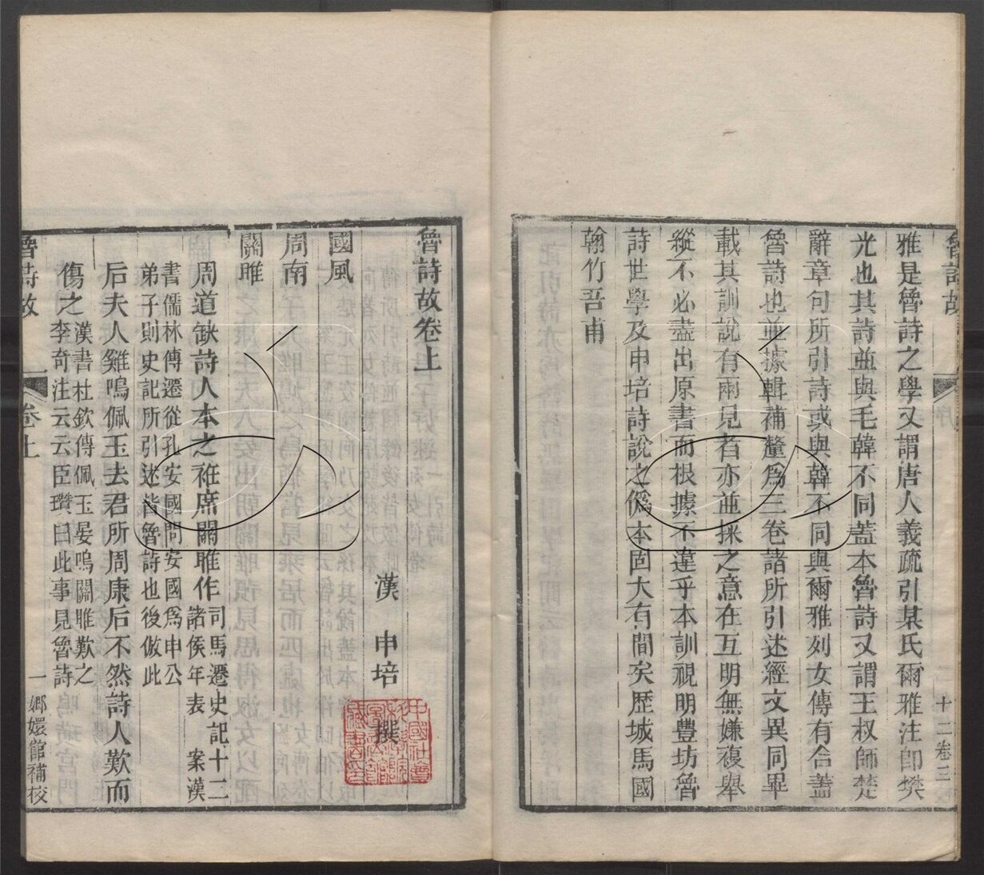 魯詩故
序
十二卷三
雅是魯詩之學又謂唐人義疏引某氏爾雅注卽樊
光也其詩並與毛韓不同蓋本魯詩又謂王叔師楚
辭章句所引詩或與韓不同與爾雅列女傳有合蓋
魯詩也並據輯補釐爲三卷諸所引述經文異同畢
載其訓說有兩見者亦並採之意在互明無嫌複舉
縱不必盡出原書而根據不違乎本訓視明豐坊魯
詩世學及申培詩說之僞本固大有間矣歷城馬國
翰竹吾甫
魯詩故卷上
漢 申培 撰
國風
周南
關雎
周道缺詩人本之袵席關雎作司馬遷史記十二
諸侯年表 案漢
書儒林傳遷從孔安國問安國爲申公
弟子則史記所引述皆魯詩也後倣此
后夫人雞鳴佩玉去君所周康后不然詩人歎而
傷之漢書杜欽傳佩玉晏鳴關雎歎之
李奇注云云臣瓚曰此事見魯詩
魯詩故
卷上
一
嫏嬛館補校